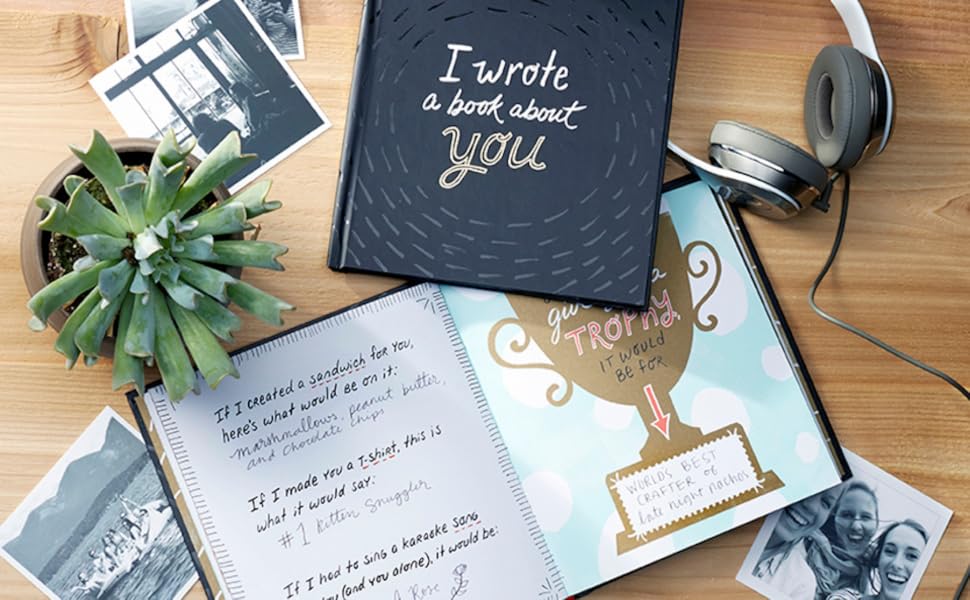 I wrote
a book about
you
If I created a sandwich for you,
here's what would be on it:
marshmallows, peanut butter,
and chocolate chips
If I made you a T-shirt, this is
what it would say:
#1 Kitten Snuggler
If I had to sing a karaoke song
(and you alone), it would be:
Rose
TROPHY,
IT WOULD
BE FOR
WORLD'S BEST
CRAFTER of
late night nachos